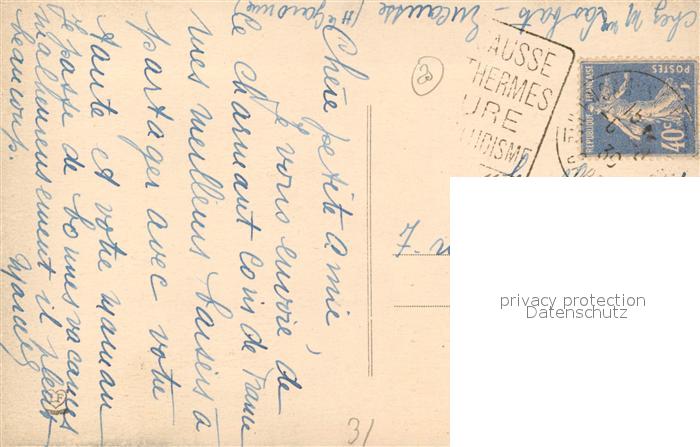 Chez Mme Lasbats - Encausse
(Hte Garonne)
Chère petite amie,
Je vous envoie de
ce charmant coin de France
mes meilleurs baisers à
partager avec votre
tante et votre maman
Je passe de bonnes vacances
malheureusement il pleut
beaucoup.
Marcel
AUSSE
THERMES
URE
UDISME
28
POSTES
REPUBLIQUE FRANÇAISE
40c
31
privacy protection
Datenschutz